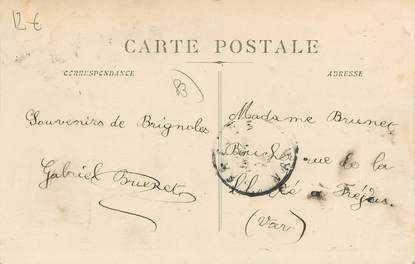 12€
CARTE POSTALE
CORRESPONDANCE
ADRESSE
83
Souvenirs de Brignoles
Gabriel Brunet
Madame Brunet
Boucher rue de la
liberté à Fréjus
(Var)